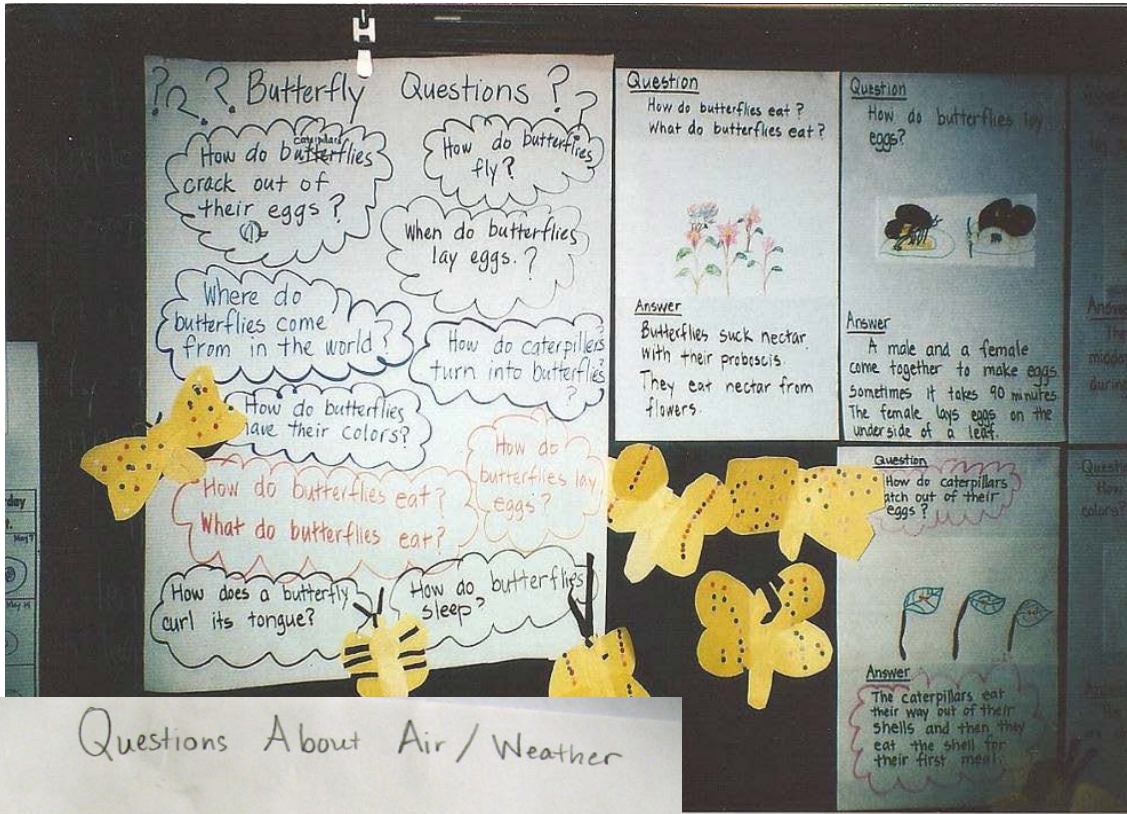 ? ? ? Butterfly Questions ? ?
How do butterflies
caterpillars
crack out of
their eggs?
How do butterflies
fly?
When do butterflies
lay eggs.?
Where do
butterflies come
from in the world?
How do caterpillers
turn into butterflies?
?
How do butterflies
have their colors?
How do
butterflies lay
eggs?
How do butterflies eat?
What do butterflies eat?
How does a butterfly
curl its tongue?
How do butterflies
sleep?
Question
How do butterflies eat?
What do butterflies eat?
Answer
Butterflies suck nectar
with their proboscis.
They eat nectar from
flowers.
Question
How do butterflies lay
eggs?
Answer
A male and a female
come together to make eggs.
Sometimes it takes 90 minutes.
The female lays eggs on the
underside of a leaf.
Question
How do caterpillars
atch out of their
eggs?
Answer
The caterpillars eat
their way out of their
shells and then they
eat the shell for
their first meal.
Questions About Air / Weather